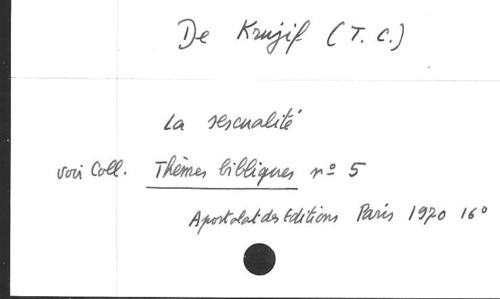 De Kruijf (T. C.)
La sexualité
voir Coll. Thèmes bibliques nº 5
Apostolat des Editions Paris 1970 16º